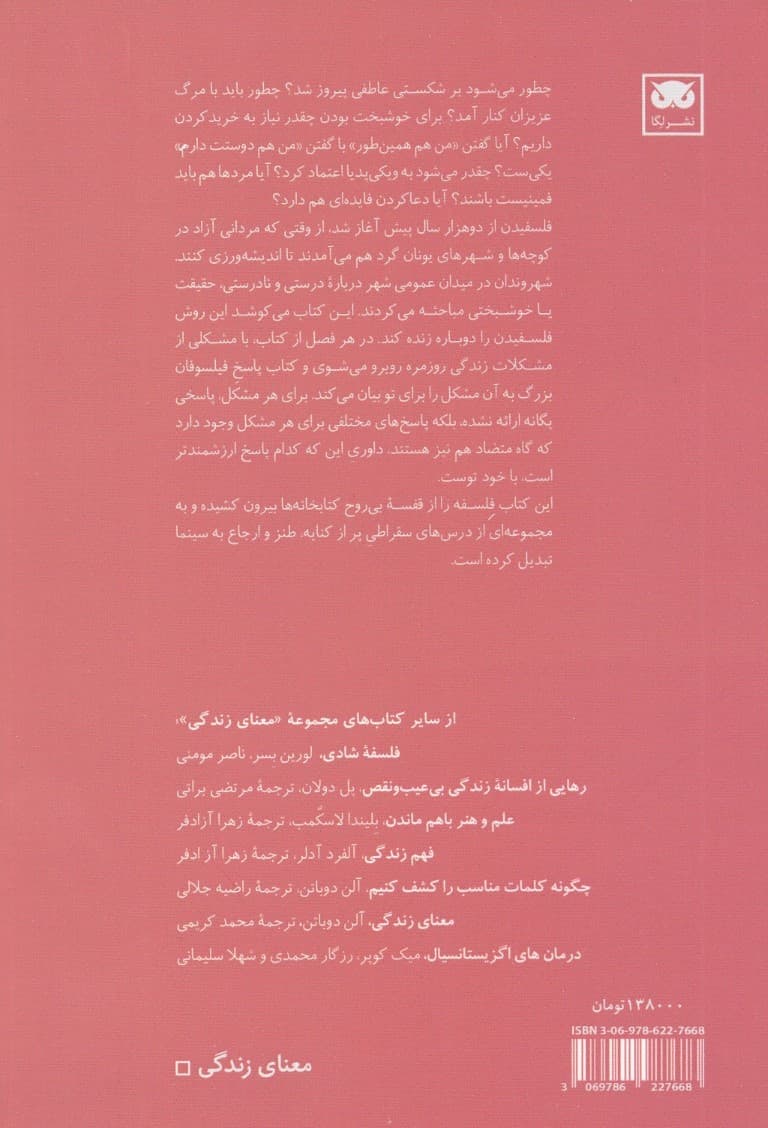 نشر لگا
چطور می‌شود بر شکستی عاطفی پیروز شد؟ چطور باید با مرگ
عزیزان کنار آمد؟ برای خوشبخت بودن چقدر نیاز به خریدکردن
داریم؟ آیا گفتن «من هم همین‌طور» با گفتن «من هم دوستت دارم»
یکی‌ست؟ چقدر می‌شود به ویکی‌پدیا اعتماد کرد؟ آیا مردها هم باید
فمینیست باشند؟ آیا دعاکردن فایده‌ای هم دارد؟
فلسفیدن از دوهزار سال پیش آغاز شد، از وقتی که مردانی آزاد در
کوچه‌ها و شهرهای یونان گرد هم می‌آمدند تا اندیشه‌ورزی کنند.
شهروندان در میدان عمومی شهر دربارهٔ درستی و نادرستی، حقیقت
یا خوشبختی مباحثه می‌کردند. این کتاب می‌کوشد این روش
فلسفیدن را دوباره زنده کند. در هر فصل از کتاب، با مشکلی از
مشکلات زندگی روزمره روبرو می‌شوی و کتاب پاسخِ فیلسوفان
بزرگ به آن مشکل را برای تو بیان می‌کند. برای هر مشکل، پاسخی
یگانه ارائه نشده، بلکه پاسخ‌های مختلفی برای هر مشکل وجود دارد
که گاه متضاد هم نیز هستند. داوری این که کدام پاسخ ارزشمندتر
است، با خود توست.
این کتاب فلسفه را از قفسهٔ بی‌روح کتابخانه‌ها بیرون کشیده و به
مجموعه‌ای از درس‌های سقراطیِ پر از کنایه، طنز و ارجاع به سینما
تبدیل کرده است.
از سایر کتاب‌های مجموعهٔ «معنای زندگی»:
فلسفهٔ شادی، لورین بسر، ناصر مومنی
رهایی از افسانهٔ زندگی بی‌عیب‌ونقص، پل دولان، ترجمهٔ مرتضی براتی
علم و هنر باهم ماندن، بِلیندا لاسکُمب، ترجمهٔ زهرا آزادفر
فهم زندگی، آلفرد آدلر، ترجمهٔ زهرا آزادفر
چگونه کلمات مناسب را کشف کنیم، آلن دوباتن، ترجمهٔ راضیه جلالی
معنای زندگی، آلن دوباتن، ترجمهٔ محمد کریمی
درمان های اگزیستانسیال، میک کوپر، رزگار محمدی و شهلا سلیمانی
۱۳۸۰۰۰ تومان
ISBN 3-06-978-622-7668
3 069786 227668
معنای زندگی